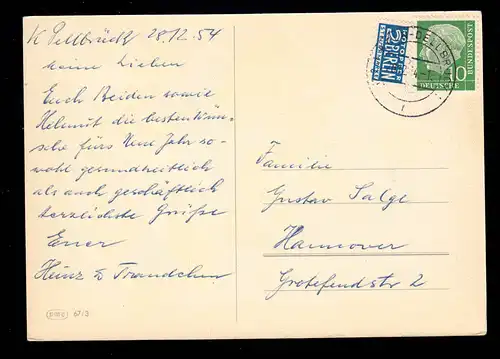 K Dellbrück 28.12.54
Meine Lieben
Euch Beiden sowie
Helmut die besten Wün-
sche fürs Neue Jahr so-
wohl gesundheitlich
als auch geschäftlich
herzlichste Grüße
Euer
Heinz u Traudchen
67/3
NOTOPFER
2 BERLIN
STEUERMARKE
DELLBR
10
DEUTSCHE
BUNDESPOST
Familie
Gustav Salge
Hannover
Grotefendstr 2